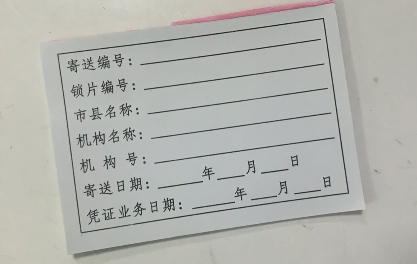 寄送编号：
锁片编号：
市县名称：
机构名称：
机 构 号：
寄送日期：______年____月____日
凭证业务日期：______年____月____日